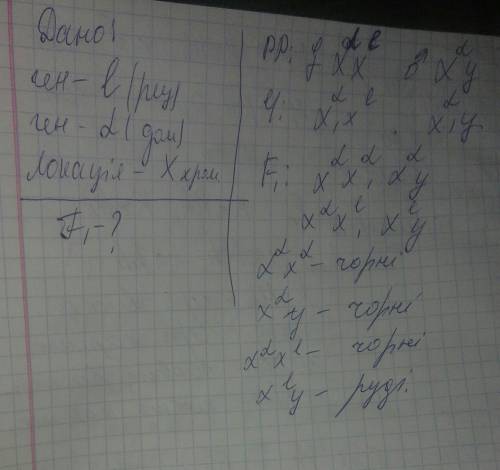 Дано!
ген - l (рец)
ген - d (дом)
Локація - X хром
F₁ - ?
PP: ♀ XᵈXˡ ♂ Xᵈy
G: xᵈ, xˡ . xᵈ, y
F₁: xᵈxᵈ, xᵈy
xᵈxˡ, xˡy
xᵈxᵈ - чорні
xᵈy - чорні
xᵈxˡ - чорні
xˡy - руді.